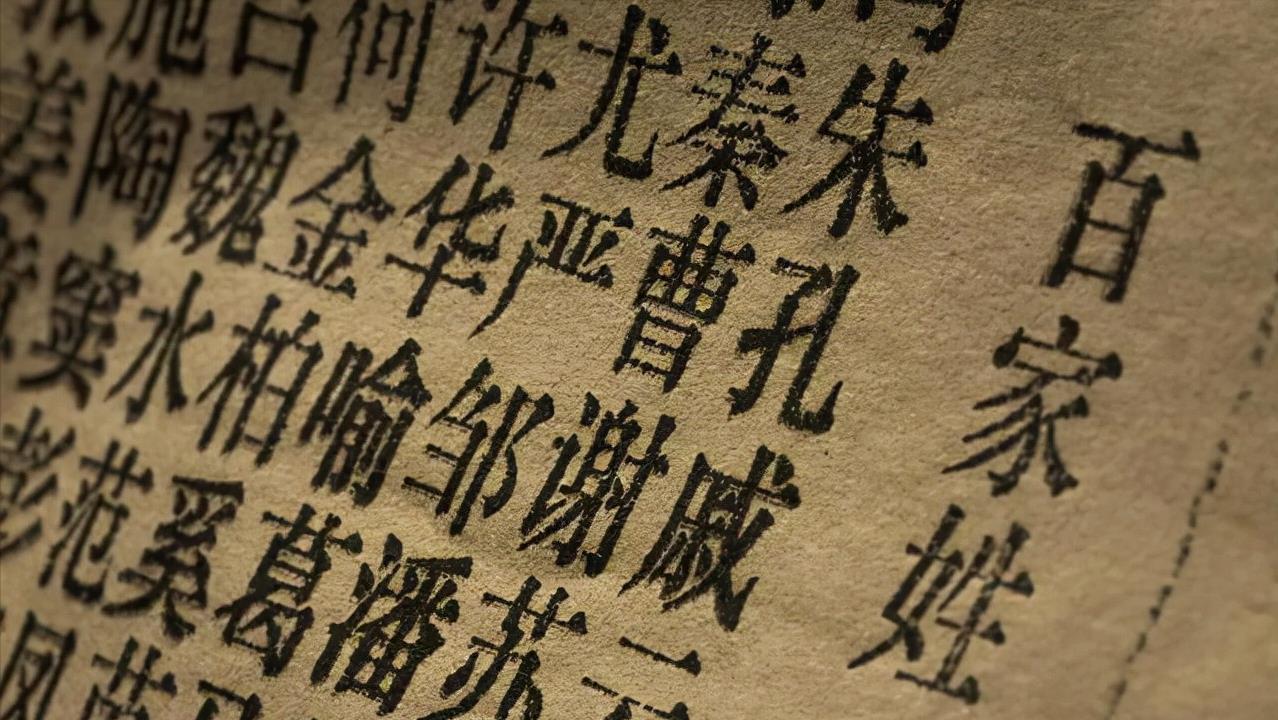 百家姓
朱秦尤许何吕施张
孔曹严华金魏陶姜
戚谢邹喻柏水窦
云苏潘葛奚范彭
苗凤